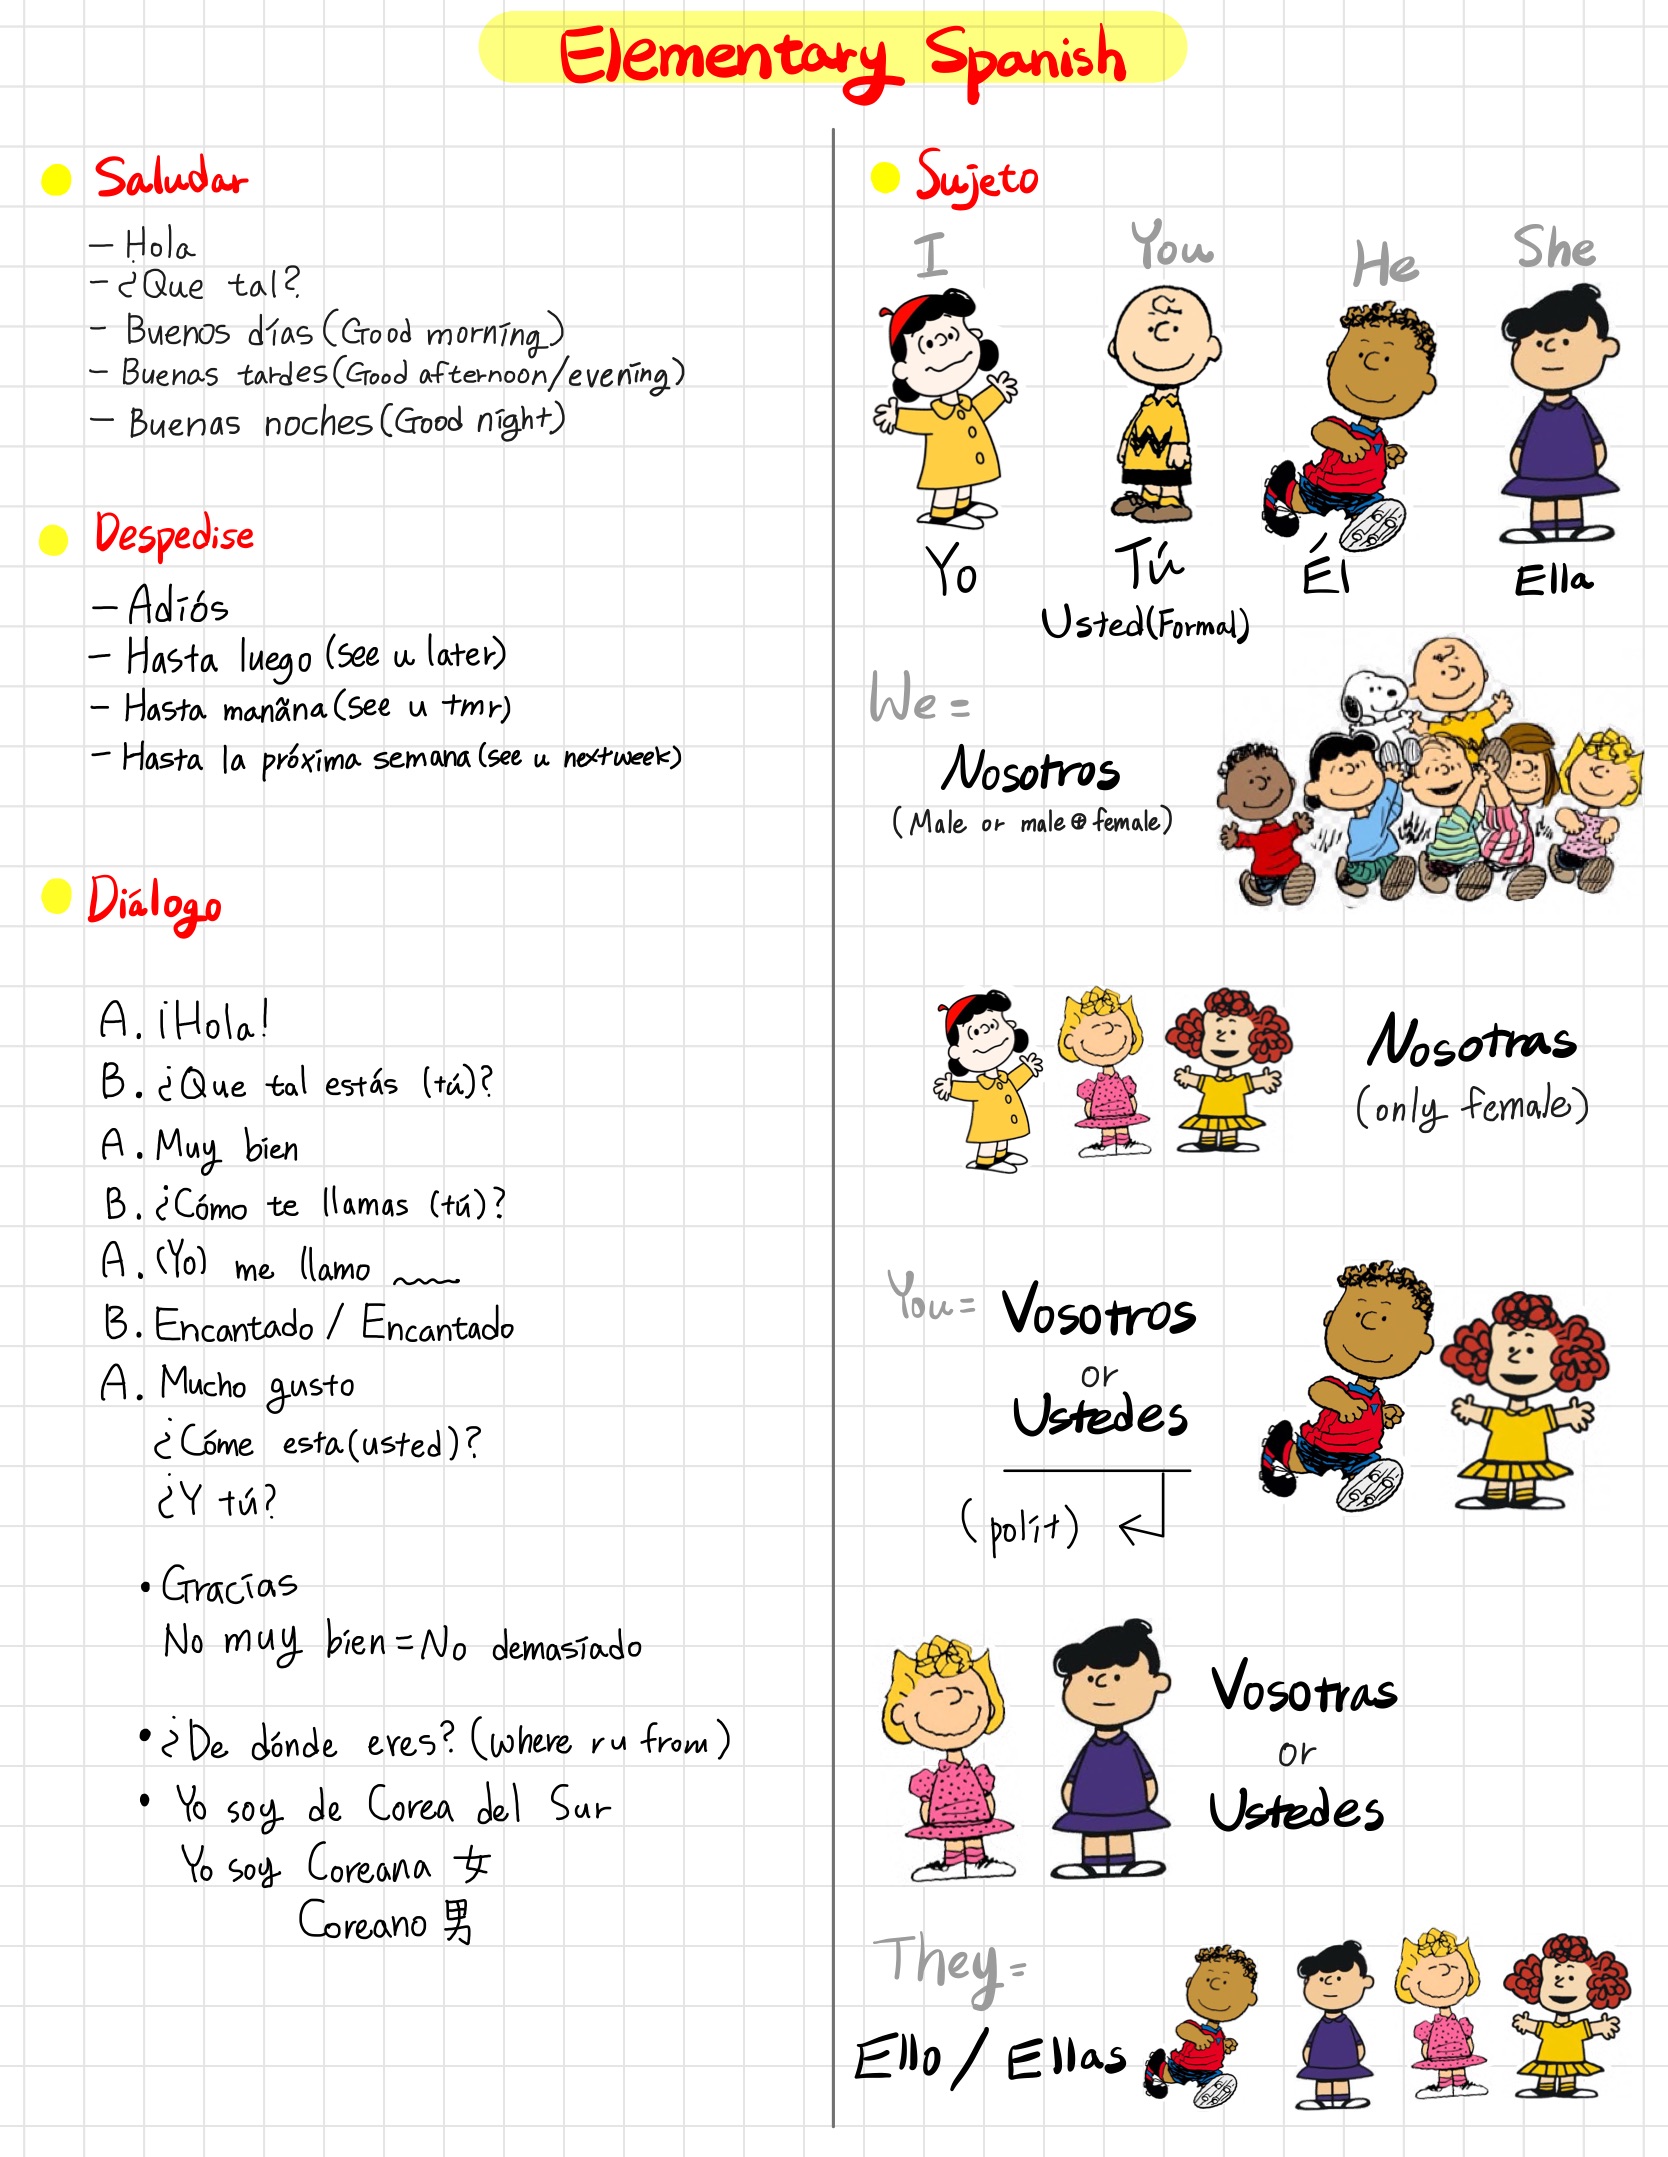 Elementary Spanish
Saludar
– Hola
– ¿Que tal?
– Buenos días (Good morning)
– Buenas tardes (Good afternoon/evening)
– Buenas noches (Good night)
Despedise
– Adiós
– Hasta luego (see u later)
– Hasta manãna (see u tmr)
– Hasta la próxima semana (see u next week)
Diálogo
A. ¡Hola!
B. ¿Que tal estás (tú)?
A. Muy bien
B. ¿Cómo te llamas (tú)?
A. (Yo) me llamo ___
B. Encantado / Encantado
A. Mucho gusto
¿Cóme esta (usted)?
¿Y tú?
• Gracias
No muy bien = No demasiado
• ¿De dónde eres? (where r u from)
• Yo soy de Corea del Sur
Yo soy Coreana 女
Coreano 男
Sujeto
I You He She
Yo Tú Él Ella
Usted (Formal)
We =
Nosotros
(Male or male ⊕ female)
Nosotras
(only female)
You = Vosotros
or
Ustedes
(polit)
Vosotras
or
Ustedes
They =
Ello / Ellas